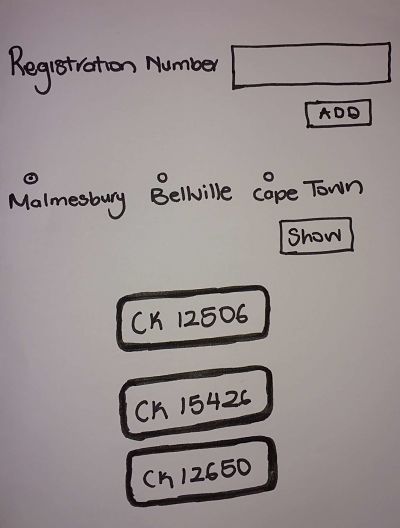 Registration Number
ADD
Malmesbury Bellville Cape Town
Show
CK 12506
CK 15426
CK 12650